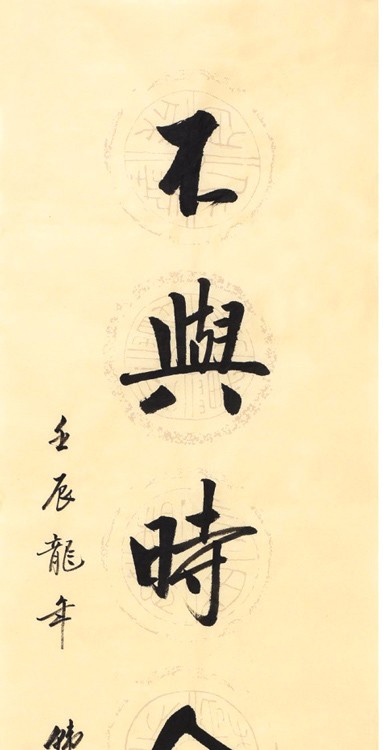 不與時
壬辰龍年